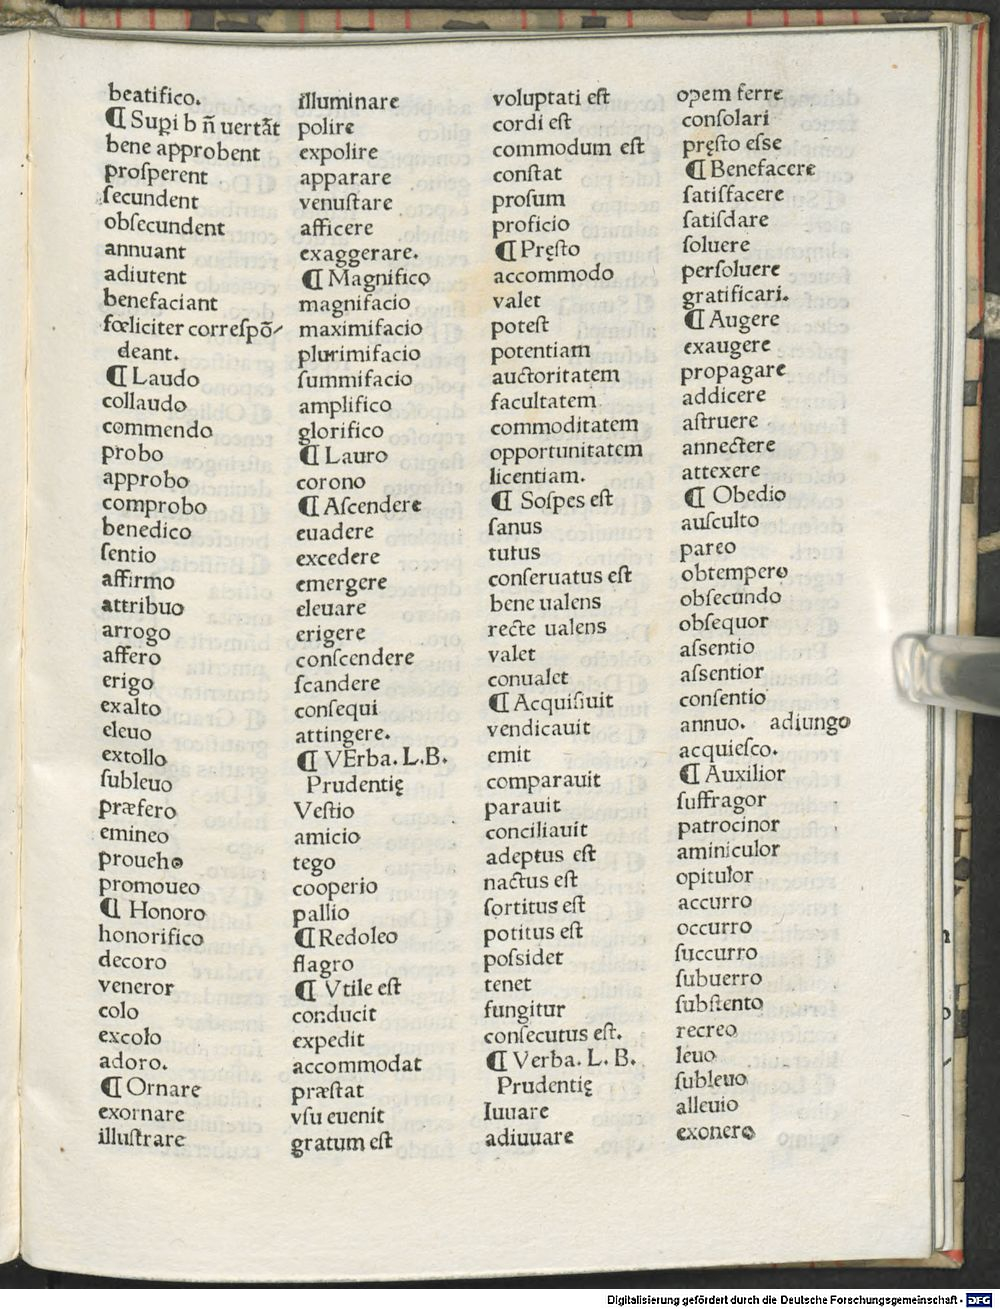 beatifico.
¶ Supi b n̄ uertãt
bene approbent
proſperent
ſecundent
obſecundent
annuant
adiutent
benefaciant
fœliciter correſpõ⸗
deant.
¶ Laudo
collaudo
commendo
probo
approbo
comprobo
benedico
ſentio
affirmo
attribuo
arrogo
affero
erigo
exalto
eleuo
extollo
ſubleuo
præfero
emineo
proueho
promoueo
¶ Honoro
honorifico
decoro
veneror
colo
excolo
adoro.
¶ Ornare
exornare
illuſtrare
illuminare
polire
expolire
apparare
venuſtare
afficere
exaggerare.
¶ Magnifico
magnifacio
maximifacio
plurimifacio
ſummifacio
amplifico
glorifico
¶ Lauro
corono
¶ Aſcendere
euadere
excedere
emergere
eleuare
erigere
conſcendere
ſcandere
conſequi
attingere.
¶ VErba. L. B.
Prudentię
Veſtio
amicio
tego
cooperio
pallio
¶ Redoleo
flagro
¶ Vtile eſt
conducit
expedit
accommodat
præſtat
vſu euenit
gratum eſt
voluptati eſt
cordi eſt
commodum eſt
conſtat
proſum
proficio
¶ Pręſto
accommodo
valet
poteſt
potentiam
auctoritatem
facultatem
commoditatem
opportunitatem
licentiam.
¶ Soſpes eſt
ſanus
tutus
conſeruatus eſt
bene ualens
recte ualens
valet
conualet
¶ Acquiſiuit
vendicauit
emit
comparauit
parauit
conciliauit
adeptus eſt
nactus eſt
ſortitus eſt
potitus eſt
poſsidet
tenet
fungitur
conſecutus eſt.
¶ Verba. L. B.
Prudentię
Iuuare
adiuuare
opem ferre
conſolari
pręſto eſse
¶ Benefacere
ſatiſfacere
ſatiſdare
ſoluere
perſoluere
gratificari.
¶ Augere
exaugere
propagare
addicere
aſtruere
annectere
attexere
¶ Obedio
auſculto
pareo
obtempero
obſecundo
obſequor
aſsentio
aſsentior
conſentio
annuo. adiungo
acquieſco.
¶ Auxilior
ſuffragor
patrocinor
aminiculor
opitulor
accurro
occurro
ſuccurro
ſubuerro
ſubſtento
recreo
leuo
ſubleuo
alleuio
exonero
Digitalisierung gefördert durch die Deutsche Forschungsgemeinschaft - DFG